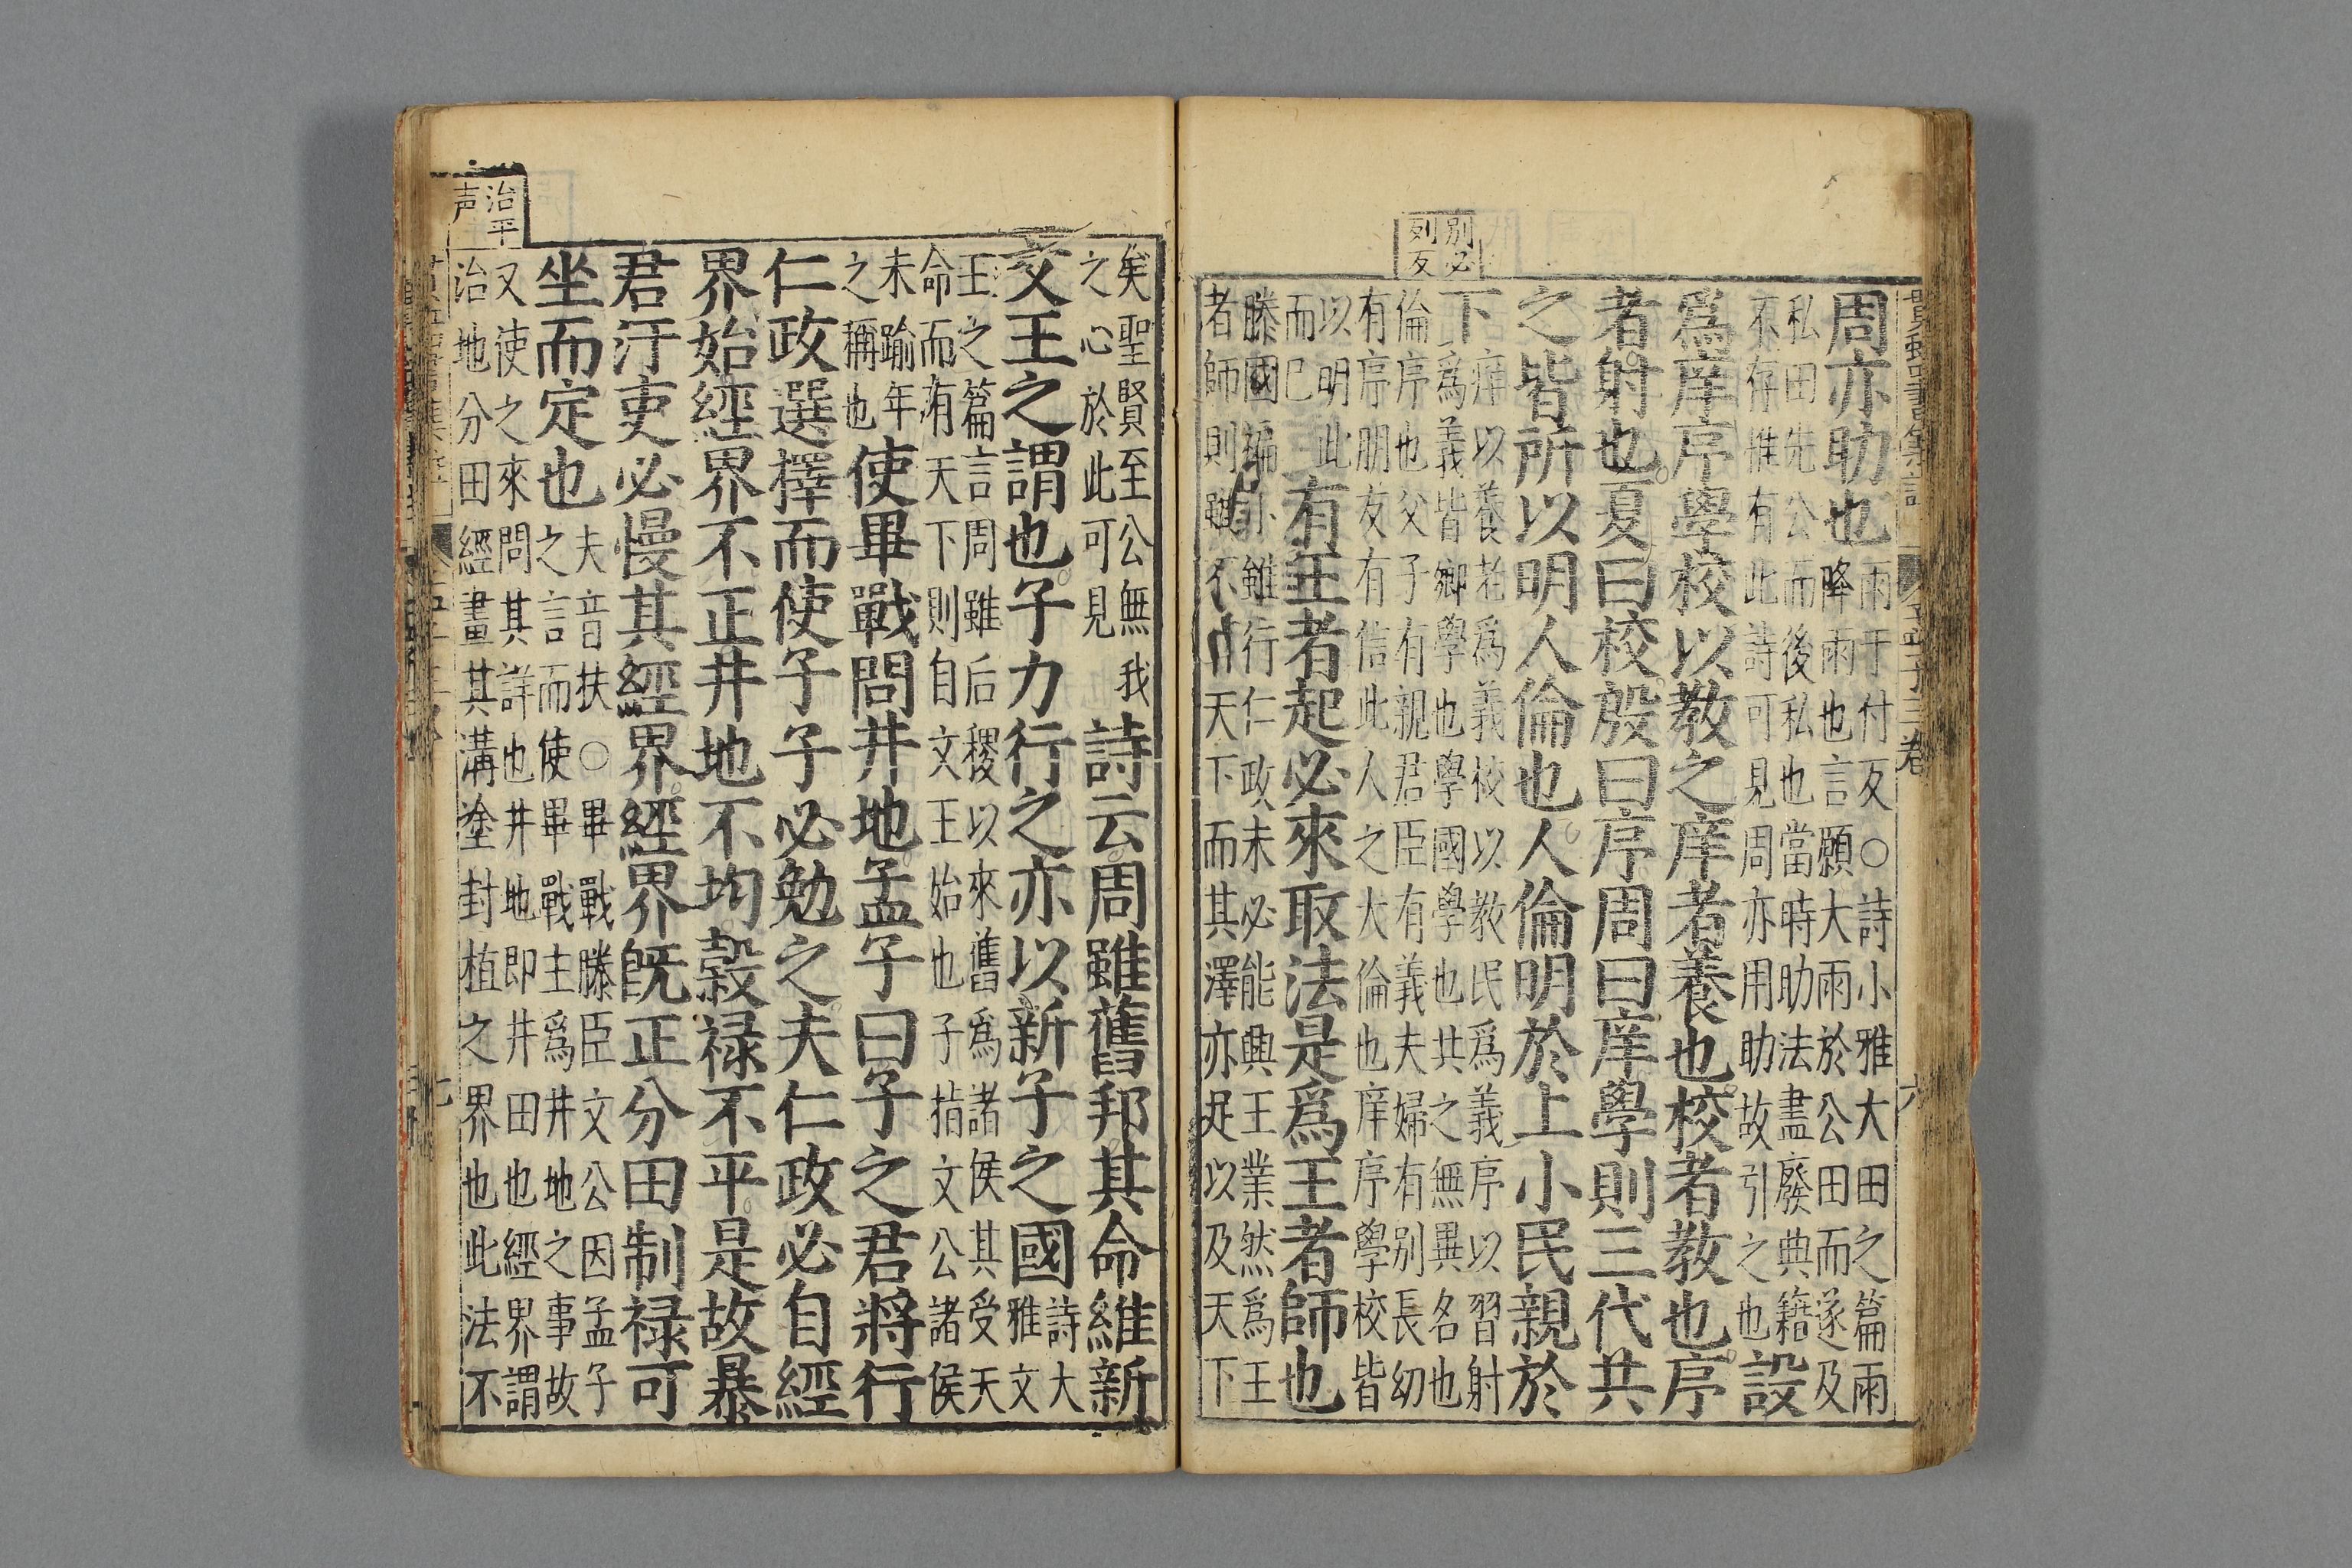 別必
列反
周亦助也
雨于付反○詩小雅大田之篇雨
降雨也言願大雨於公田而遂及
私田先公而後私也當時助法盡廢典籍
不存惟有此詩可見周亦用助故引之也
設
爲庠序學校以教之庠者養也校者教也序
者射也夏曰校殷曰序周曰庠學則三代共
之皆所以明人倫也人倫明於上小民親於
下
庠以養老爲義校以教民爲義序以習射
爲義皆鄉學也學國學也共之無異名也
倫序也父子有親君臣有義夫婦有別長幼
有序朋友有信此人之大倫也庠序學校皆
以明此
而已
有王者起必來取法是爲王者師也
滕國褊小雖行仁政未必能興王業然爲王
者師則雖不有天下而其澤亦足以及天下
矣聖賢至公無我
之心於此可見
詩云周雖舊邦其命維新
文王之謂也子力行之亦以新子之國
詩大
雅文
王之篇言周雖后稷以來舊爲諸侯其受天
命而有天下則自文王始也子指文公諸侯
未踰年
之稱也
使畢戰問井地孟子曰子之君將行
仁政選擇而使子子必勉之夫仁政必自經
界始經界不正井地不均穀祿不平是故暴
君汙吏必慢其經界經界旣正分田制祿可
坐而定也
夫音扶○畢戰滕臣文公因孟子
之言而使畢戰主爲井地之事故
又使之來問其詳也井地即井田也經界謂
治地分田經畫其溝塗封植之界也此法不
治平
声